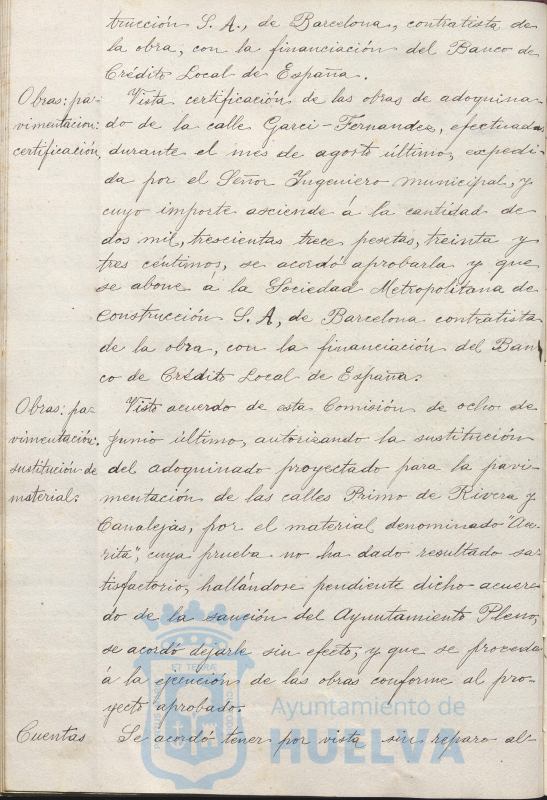 trucción S. A., de Barcelona, contratista de
la obra, con la financiación del Banco de
Crédito Local de España.
Obras: pa-
vimentacion:
certificación,
Vista certificación de las obras de adoquina-
do de la calle Garci-Fernandez, efectuadas
durante el mes de agosto último, expedi-
da por el Señor Ingeniero municipal, y
cuyo importe asciende á la cantidad de
dos mil, trescientas trece pesetas, treinta y
tres céntimos, se acordó aprobarla y que
se abone á la Sociedad Metropolitana de
Construcción S. A, de Barcelona contratista
de la obra, con la financiación del Ban
co de Crédito Local de España.
Obras: pa-
vimentación:
sustitución de
material:
Visto acuerdo de esta Comisión de ocho de
Junio último, autorizando la sustitución
del adoquinado proyectado para la pavi-
mentación de las calles Primo de Rivera y
Canalejas, por el material denominado
cuya prueba no ha dado resultado sa-
tisfactorio, hallándose pendiente dicho acuer-
do de la sanción del Ayuntamiento Pleno,
se acordó dejarle sin efecto, y que se proceda
á la ejecución de las obras conforme al pro-
yecto aprobado.
Cuentas
Se acordó tener por vista sin reparo al-
Ayuntamiento de
HUELVA